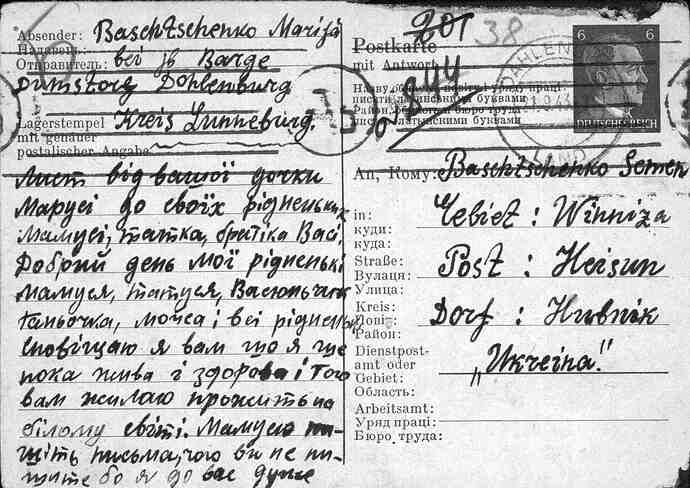 Absender: Baschtschenko Marija
Надавець:
Отправитель: bei jb Barge
Dumstorf Dohlenburg
Lagerstempel Kreis Lunneburg.
mit genauer
postalischer Angabe
Лист від вашої дочки
Марусі до своїх рідненьких
Мамусі, татка, братіка Васі.
Добрий день мої рідненькі
мамуся, татуся, Васюньчик
Ганьочка, і всі рідненькі
сповіщаю я вам що я ще
пока жива і здорова і того
вам жилаю прожить на
білому світі. Мамусю пи-
шіть письма, чого ви не пи-
шите бо я до вас дуже
38
Postkarte
mit Antwort
Назву області, повіту і уряду праці
писати латинськими буквами
Район, область и бюро труда
писать латынскими буквами
DAHLENBURG
LAND
6 6
DEUTSCHES REICH
An, Кому: Baschtschenko Semen
in: Gebiet: Winniza
куди:
куда:
Straße: Post: Heisun
Вулиця:
Улица:
Kreis: Dorf: Hubnik
Район:
Dienstpost-
amt oder "Ukreina."
Gebiet:
Область:
Arbeitsamt:
Уряд праці:
Бюро труда: